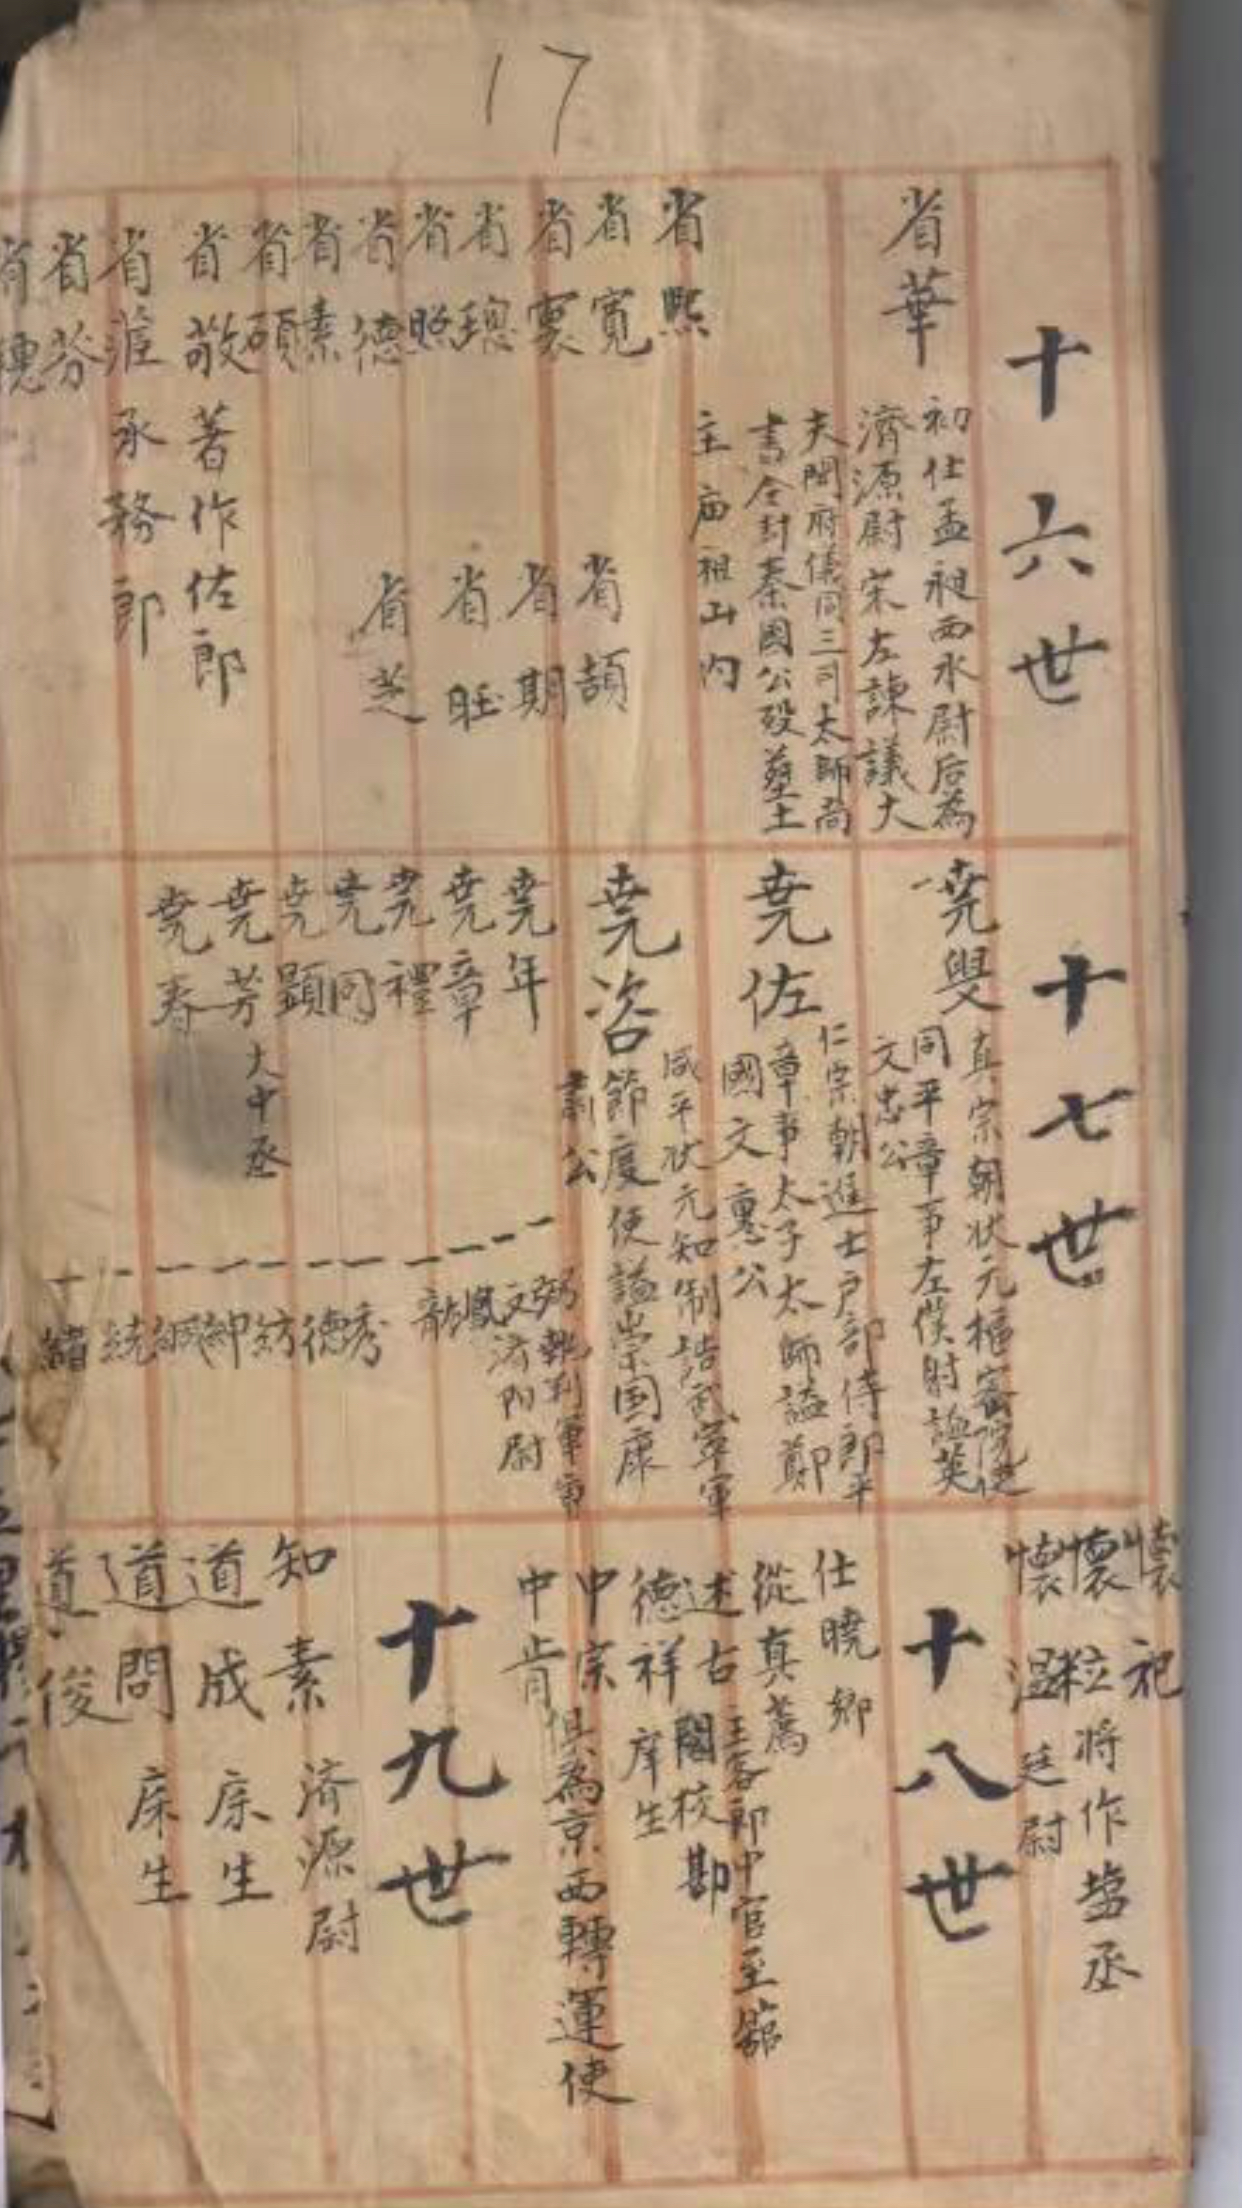 17
十六世
省華
初仕孟昶西水尉后為
濟源尉宋左諫議大
夫開府儀同三司太師尚
書令封秦國公殁塟土
主庙祖山内
省熙
省寬
省
省
省照
省德
省素
省碩
省敬 著作佐郎
省 承務郎
省芬
省
省頡
省期
省旺
省芝
十七世
尭叟
真宗朝状元樞密院使
同平章事左僕射謚英
文忠公
尭佐
仁宗朝進士户部侍郎平
章事太子太師謚鄭
國文惠公
尭咨
咸平状元知制誥武寧軍
節度使謚崇国康
肅公
尭年
尭章
尭禮
尭同
尭顕
尭芳 大中丞
尭春
弼 執判軍
文 济阳尉
鳳
龍
秀
德
紡
紳
綱
統
緒
懷祀
懷粒 将作监丞
懷温 廷尉
十八世
仕曉 鄉
從真薦
述古 主客郎中官至館
閣校勘
德祥 庠生
中宗
中肯
俱為京西轉運使
十九世
知素 济源尉
道成 庠生
道問 庠生
道俊